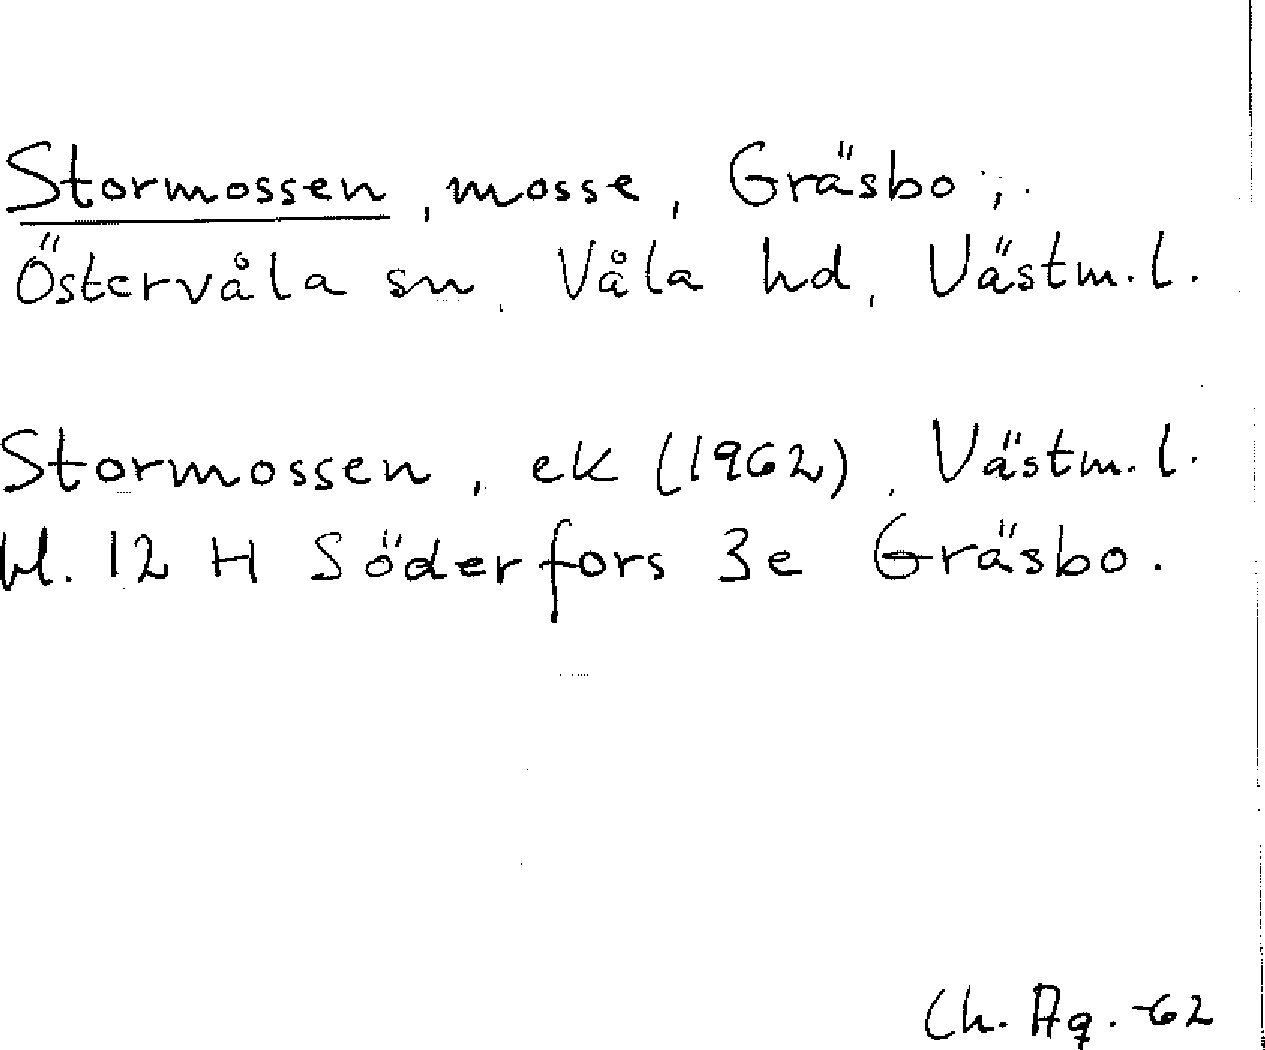 Stormossen, mosse, Gräsbo,
Östervåla sn, Våla hd, Västm.l.
Stormossen, ek (1962), Västm.l.
bl. 12 H Söderfors 3e Gräsbo.
Ch. Ag. -62